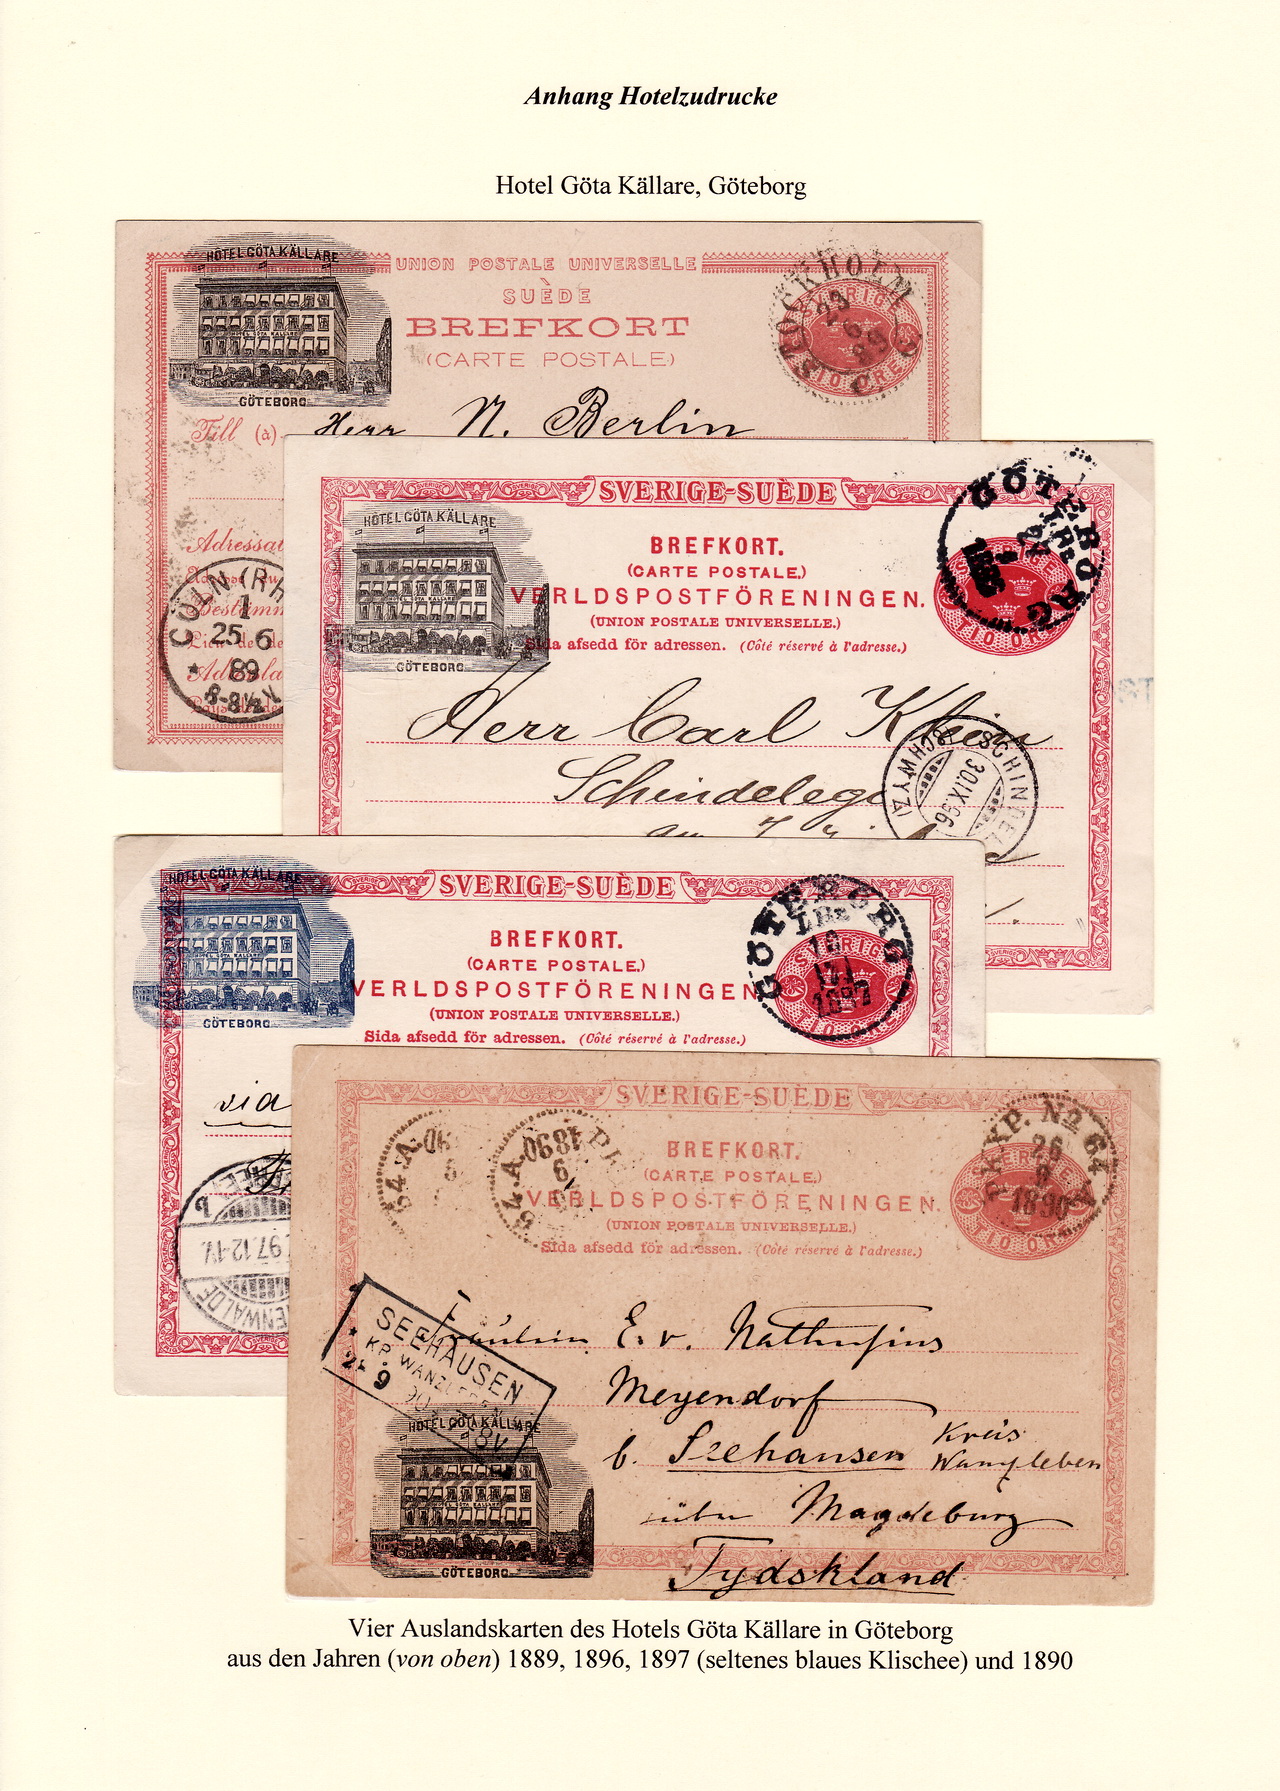 Anhang Hotelzudrucke
Hotel Göta Källare, Göteborg
HÔTEL GÖTA KÄLLARE
HOTEL GÖTA KÄLLARE
GÖTEBORG
UNION POSTALE UNIVERSELLE
SUÈDE
BREFKORT
(CARTE POSTALE)
STOCKHOLM
23
6
89
SVERIGE
10 ÖRE
Till (à) Herr N. Berlin
CÖLN (RH
1
25 6
89
8-8½
SVERIGE-SUÈDE
HÔTEL GÖTA KÄLLARE
HOTEL GÖTA KÄLLARE
GÖTEBORG
BREFKORT.
(CARTE POSTALE.)
VERLDSPOSTFÖRENINGEN.
(UNION POSTALE UNIVERSELLE.)
Sida afsedd för adressen. (Côté réservé à l'adresse.)
GÖTEBORG
SVERIGE
10 ÖRE
Herr Carl Klein
Schindelegi
SCHINDELE
(SCHWYZ)
30.IX.96
SVERIGE-SUÈDE
HÔTEL GÖTA KÄLLARE
HOTEL GÖTA KÄLLARE
GÖTEBORG
BREFKORT.
(CARTE POSTALE.)
VERLDSPOSTFÖRENINGEN
(UNION POSTALE UNIVERSELLE.)
Sida afsedd för adressen. (Côté réservé à l'adresse.)
GÖTEBORG
LBr
SVERIGE
10 ÖRE
via
97.12-1V.
ENWALDE
SVERIGE-SUÈDE
BREFKORT.
(CARTE POSTALE.)
VERLDSPOSTFÖRENINGEN.
(UNION POSTALE UNIVERSELLE.)
Sida afsedd för adressen. (Côté réservé à l'adresse.)
PKXP. No 64
26
9
1890
54.A.
1890
SEEHAUSEN
KR. WANZLEBEN
9
Fräulein E. v. Nathusius
Meyendorf
b. Seehausen Kreis
Wanzleben
über Magdeburg
Tydskland
HÔTEL GÖTA KÄLLARE
HOTEL GÖTA KÄLLARE
GÖTEBORG
Vier Auslandskarten des Hotels Göta Källare in Göteborg
aus den Jahren (von oben) 1889, 1896, 1897 (seltenes blaues Klischee) und 1890